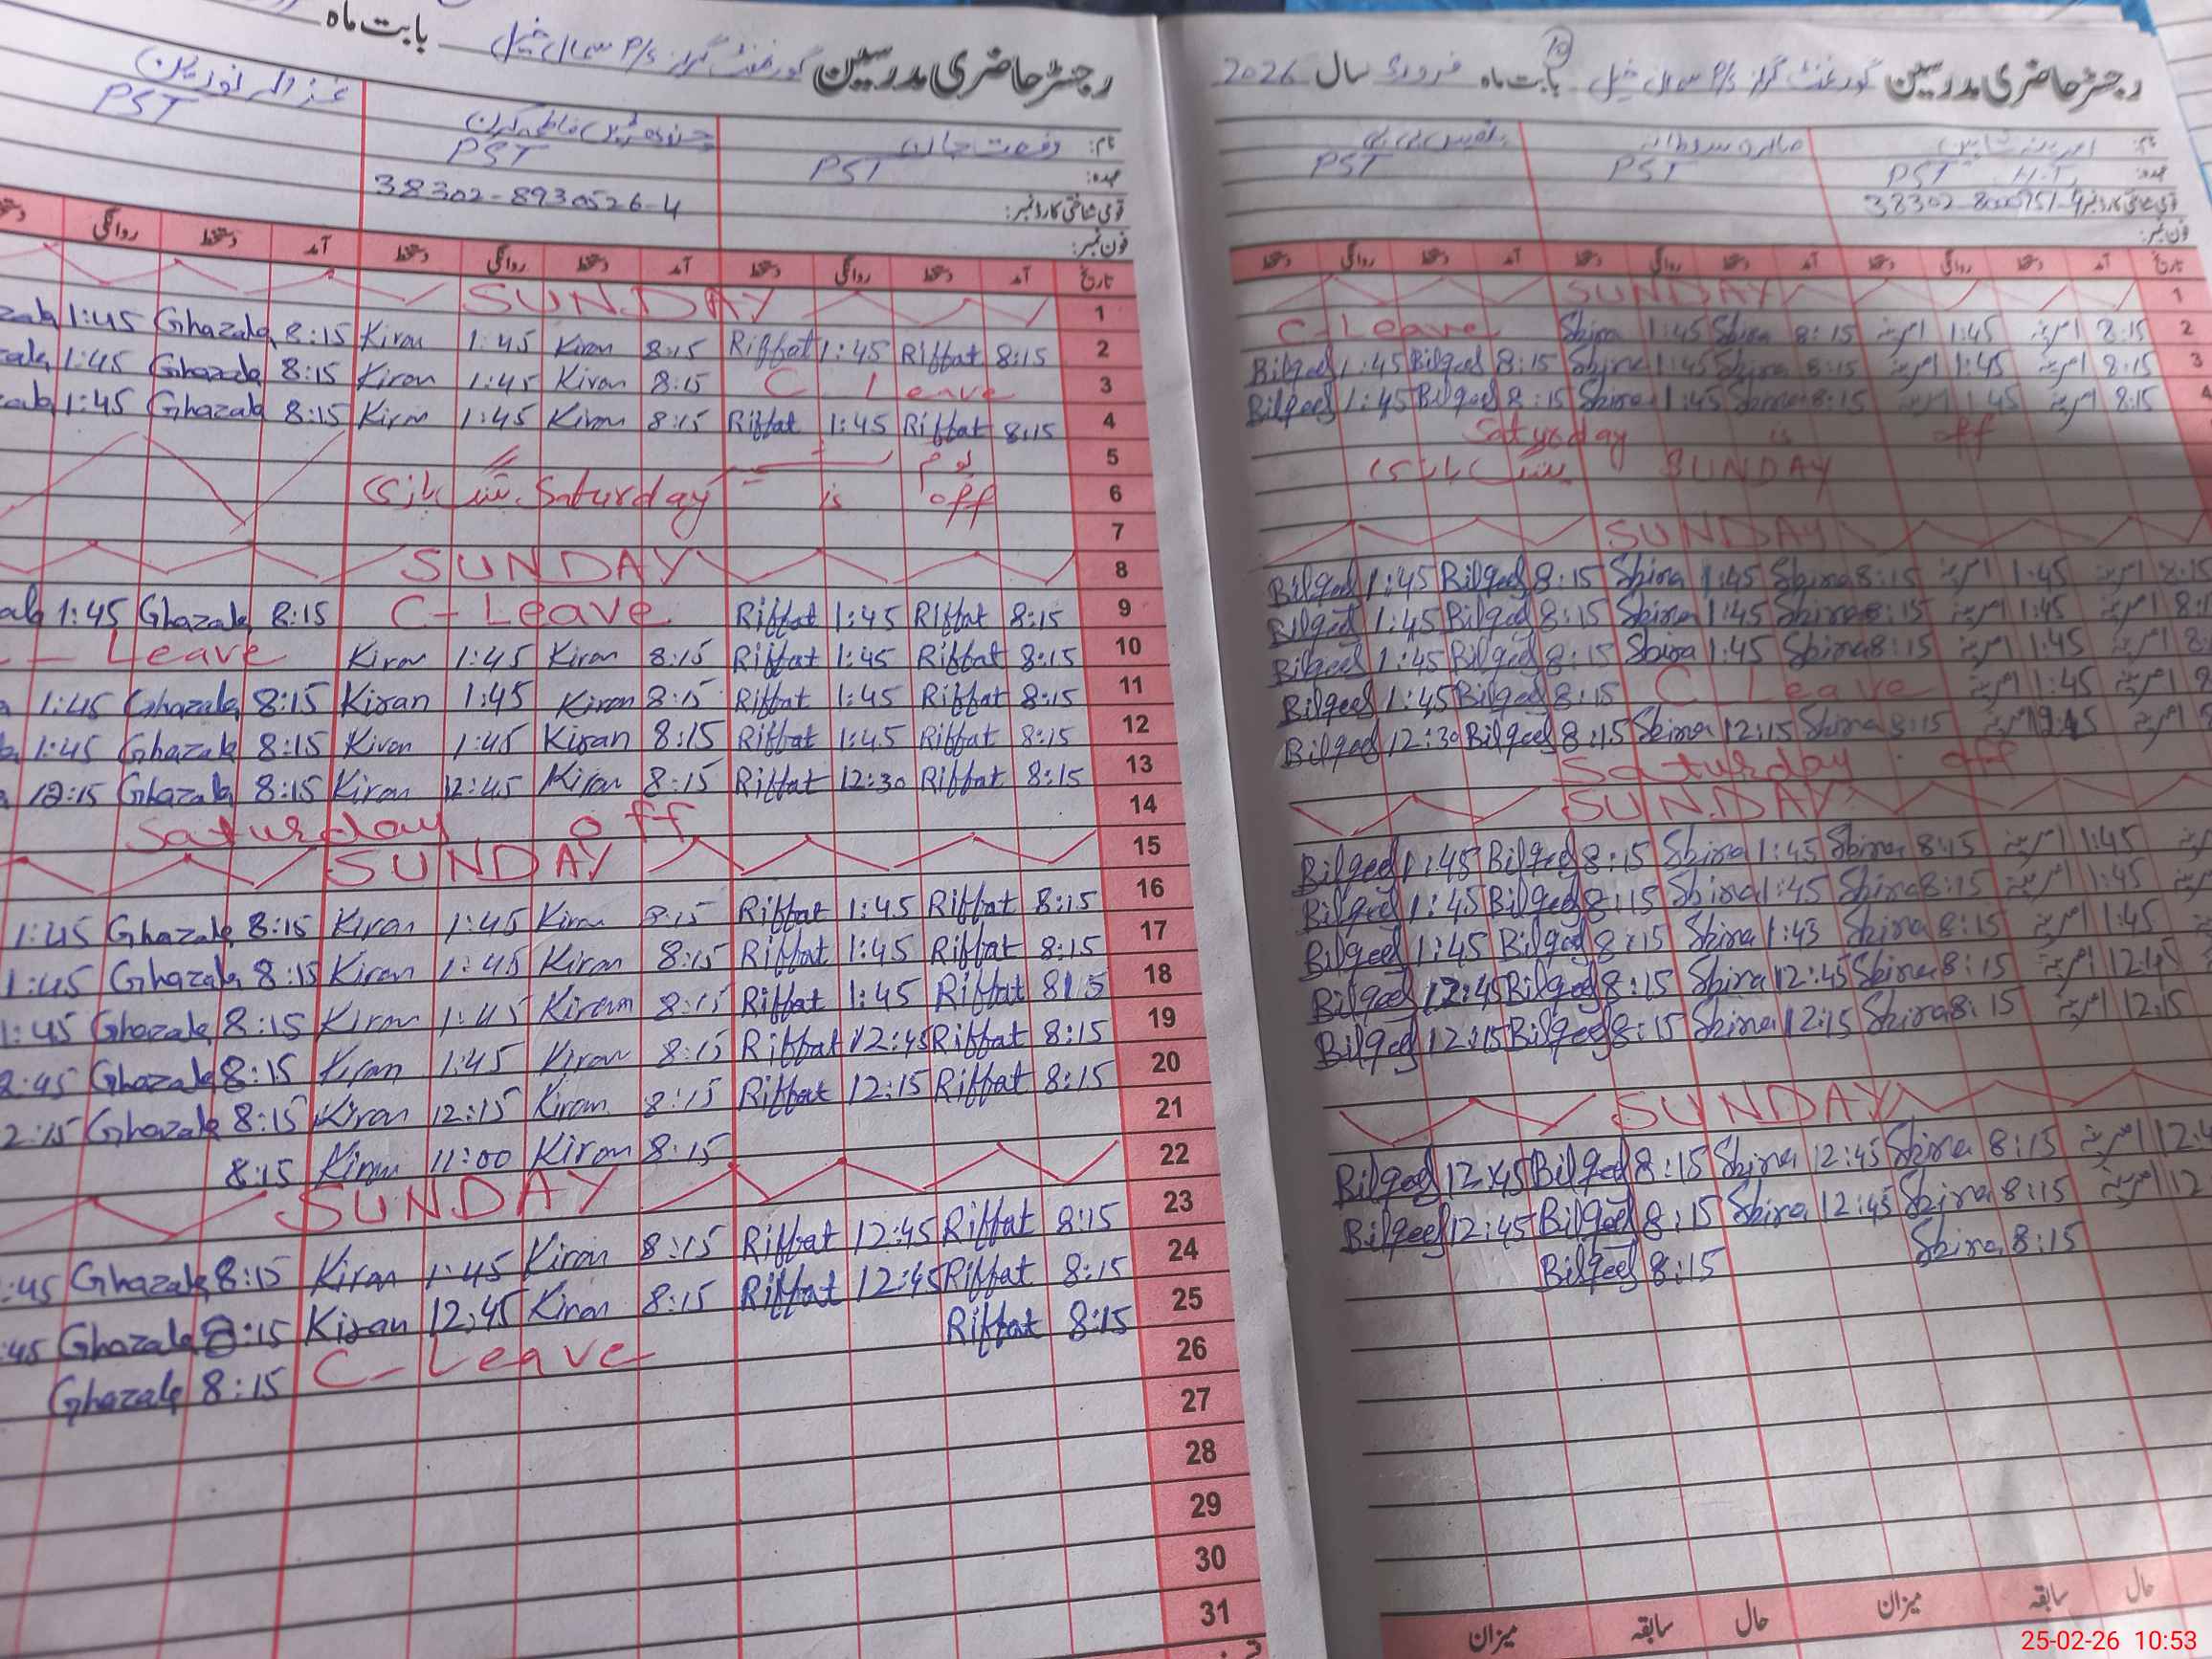 رجسٹر حاضری مدرسین گورنمنٹ گرلز P/S سال خیل بابت ماہ
نام: رفعت جان
عہدہ: PST PST PST
قومی شناختی کارڈ نمبر: 38302-8930526-4
فون نمبر:
تاریخ آمد دستخط روانگی دستخط آمد دستخط روانگی دستخط آمد دستخط روانگی
SUNDAY 1
1:45 Ghazala 8:15 Kiran 1:45 Kiran 8:15 Riffat 1:45 Riffat 8:15 2
1:45 Ghazala 8:15 Kiran 1:45 Kiran 8:15 C Leave 3
1:45 Ghazala 8:15 Kiran 1:45 Kiran 8:15 Riffat 1:45 Riffat 8:15 4
5
Saturday is off 6
7
SUNDAY 8
1:45 Ghazala 8:15 C-Leave Riffat 1:45 Riffat 8:15 9
Leave Kiran 1:45 Kiran 8:15 Riffat 1:45 Riffat 8:15 10
1:45 Ghazala 8:15 Kiran 1:45 Kiran 8:15 Riffat 1:45 Riffat 8:15 11
1:45 Ghazala 8:15 Kiran 1:45 Kiran 8:15 Riffat 1:45 Riffat 8:15 12
12:15 Ghazala 8:15 Kiran 12:45 Kiran 8:15 Riffat 12:30 Riffat 8:15 13
Saturday off 14
SUNDAY 15
1:45 Ghazala 8:15 Kiran 1:45 Kiran 8:15 Riffat 1:45 Riffat 8:15 16
1:45 Ghazala 8:15 Kiran 1:45 Kiran 8:15 Riffat 1:45 Riffat 8:15 17
1:45 Ghazala 8:15 Kiran 1:45 Kiran 8:15 Riffat 1:45 Riffat 815 18
2:45 Ghazala 8:15 Kiran 1:45 Kiran 8:15 Riffat 12:45 Riffat 8:15 19
2:15 Ghazala 8:15 Kiran 12:15 Kiran 8:15 Riffat 12:15 Riffat 8:15 20
8:15 Kiran 11:00 Kiran 8:15 21
SUNDAY 22
:45 Ghazala 8:15 Kiran 1:45 Kiran 8:15 Riffat 12:45 Riffat 8:15 23
:45 Ghazala 8:15 Kiran 12:45 Kiran 8:15 Riffat 12:45 Riffat 8:15 24
Ghazala 8:15 C-Leave Riffat 8:15 25
26
27
28
29
30
31
رجسٹر حاضری مدرسین گورنمنٹ گرلز P/S سال خیل بابت ماہ فروری سال 2026
نام: بلقیس بی بی
عہدہ: PST H.T PST PST
قومی شناختی کارڈ نمبر
فون نمبر:
تاریخ آمد دستخط روانگی دستخط آمد دستخط روانگی دستخط آمد دستخط روانگی دستخط
SUNDAY 1
C-Leave Shira 1:45 Shira 8:15 1:45 8:15 2
Bilqees 1:45 Bilqees 8:15 Shira 1:45 Shira 8:15 1:45 8:15 3
Bilqees 1:45 Bilqees 8:15 Shira 1:45 Shira 8:15 1:45 8:15 4
Saturday is off
SUNDAY
SUNDAY
Bilqees 1:45 Bilqees 8:15 Shira 1:45 Shira 8:15 1:45 8:15
Bilqees 1:45 Bilqees 8:15 Shira 1:45 Shira 8:15 1:45
Bilqees 1:45 Bilqees 8:15 Shira 1:45 Shira 8:15 1:45
Bilqees 1:45 Bilqees 8:15 C Leave 1:45
Bilqees 12:30 Bilqees 8:15 Shira 12:15 Shira 8:15
Saturday off
SUNDAY
Bilqees 1:45 Bilqees 8:15 Shira 1:45 Shira 8:15 1:45
Bilqees 1:45 Bilqees 8:15 Shira 1:45 Shira 8:15 1:45
Bilqees 1:45 Bilqees 8:15 Shira 1:45 Shira 8:15 1:45
Bilqees 12:45 Bilqees 8:15 Shira 12:45 Shira 8:15 12:45
Bilqees 12:15 Bilqees 8:15 Shira 12:15 Shira 8:15 12:15
SUNDAY
Bilqees 12:45 Bilqees 8:15 Shira 12:45 Shira 8:15 12:4
Bilqees 12:45 Bilqees 8:15 Shira 12:45 Shira 8:15 12
Bilqees 8:15 Shira 8:15
حال سابقہ میزان حال سابقہ میزان
25-02-26 10:53